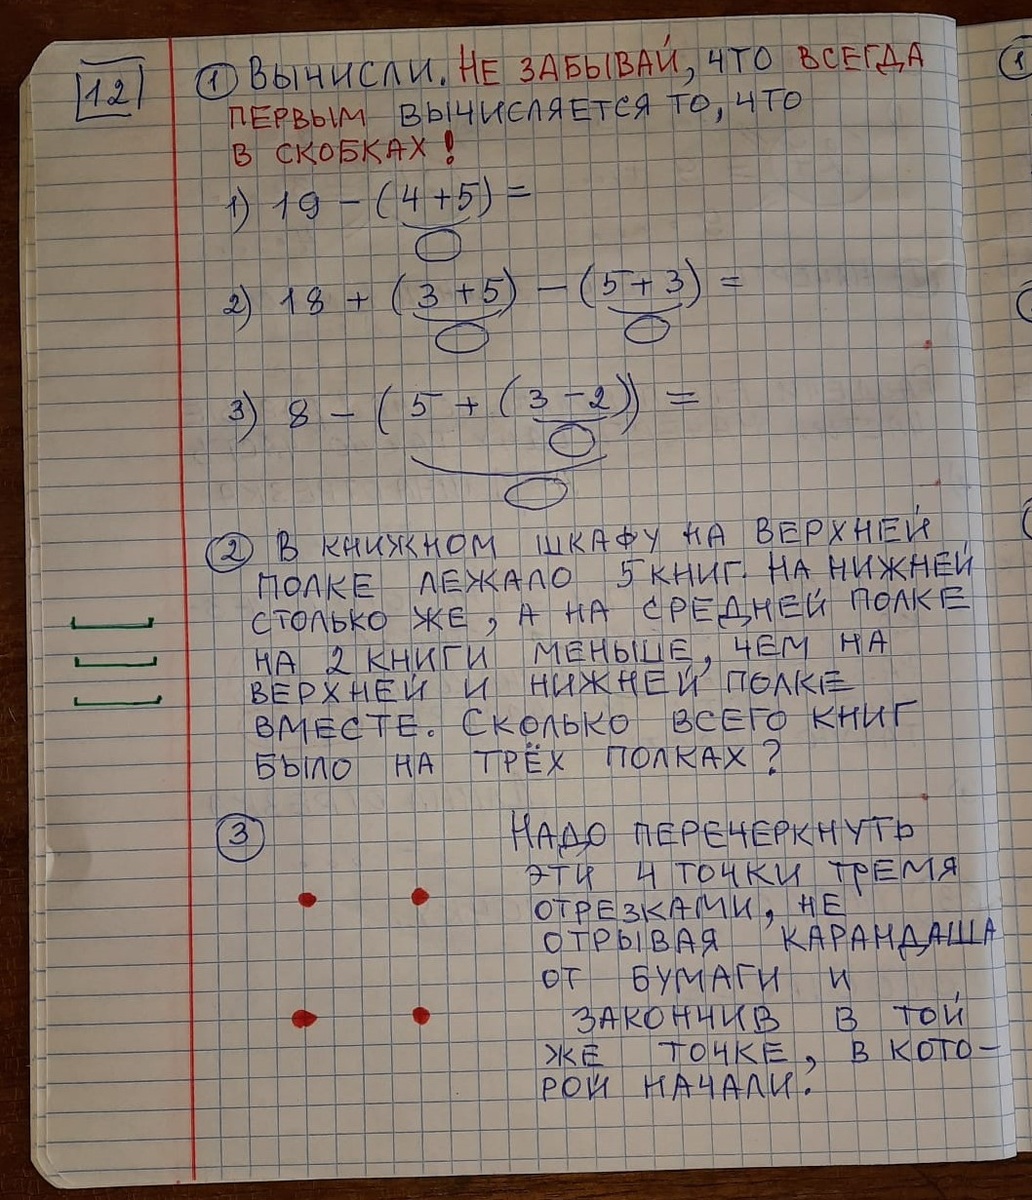 12
① ВЫЧИСЛИ. НЕ ЗАБЫВАЙ, ЧТО ВСЕГДА
ПЕРВЫМ ВЫЧИСЛЯЕТСЯ ТО, ЧТО
В СКОБКАХ!
1) 19 - (4 + 5) =
2) 18 + (3 + 5) - (5 + 3) =
3) 8 - (5 + (3 - 2)) =
② В КНИЖНОМ ШКАФУ НА ВЕРХНЕЙ
ПОЛКЕ ЛЕЖАЛО 5 КНИГ. НА НИЖНЕЙ
СТОЛЬКО ЖЕ, А НА СРЕДНЕЙ ПОЛКЕ
НА 2 КНИГИ МЕНЬШЕ, ЧЕМ НА
ВЕРХНЕЙ И НИЖНЕЙ ПОЛКЕ
ВМЕСТЕ. СКОЛЬКО ВСЕГО КНИГ
БЫЛО НА ТРЁХ ПОЛКАХ?
③ НАДО ПЕРЕЧЕРКНУТЬ
ЭТИ 4 ТОЧКИ ТРЕМЯ
ОТРЕЗКАМИ, НЕ
ОТРЫВАЯ КАРАНДАША
ОТ БУМАГИ И
ЗАКОНЧИВ В ТОЙ
ЖЕ ТОЧКЕ, В КОТО-
РОЙ НАЧАЛИ.